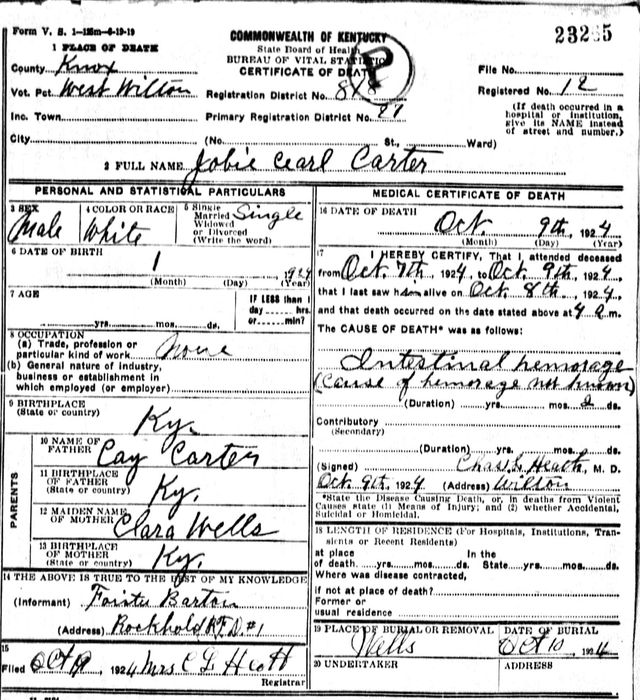 Form V. S. 1-125m-6-19-19
COMMONWEALTH OF KENTUCKY
State Board of Health
BUREAU OF VITAL STATISTICS
CERTIFICATE OF DEATH
P
1 PLACE OF DEATH
County Knox
Vot. Pct. West Wilton
Inc. Town
City
Registration District No. 818
Primary Registration District No.
(No. St., Ward)
File No.
Registered No. 12
(If death occurred in a
hospital or institution,
give its NAME instead
of street and number.)
2 FULL NAME Jobie Cearl Carter
PERSONAL AND STATISTICAL PARTICULARS
3 SEX
Male
4 COLOR OR RACE
White
5 Single
Married
Widowed
or Divorced
(Write the word)
Single
6 DATE OF BIRTH
1 1924
(Month) (Day) (Year)
7 AGE
yrs. mos. ds.
IF LESS than 1
day hrs.
or min?
8 OCCUPATION
(a) Trade, profession or
particular kind of work None
(b) General nature of industry,
business or establishment in
which employed (or employer)
9 BIRTHPLACE
(State or country) Ky.
PARENTS
10 NAME OF
FATHER Cay Carter
11 BIRTHPLACE
OF FATHER
(State or country) Ky.
12 MAIDEN NAME
OF MOTHER Clara Wells
13 BIRTHPLACE
OF MOTHER
(State or country) Ky.
14 THE ABOVE IS TRUE TO THE BEST OF MY KNOWLEDGE
(Informant) Barton
(Address) Rockhold R.F.D. #1
15
Filed Oct 1924 Mrs C L
Registrar
MEDICAL CERTIFICATE OF DEATH
16 DATE OF DEATH
Oct. 9th, 1924
(Month) (Day) (Year)
17 I HEREBY CERTIFY, That I attended deceased
from Oct 7th, 1924, to Oct. 9th, 1924,
that I last saw him alive on Oct. 8th, 1924,
and that death occurred on the date stated above at 4 a.m.
The CAUSE OF DEATH* was as follows:
Intestinal hemorage
(Cause of hemorage not known)
(Duration) yrs. mos. 2 ds.
Contributory
(Secondary)
(Duration) yrs. mos. ds.
(Signed) Chas. L. Heath, M. D.
Oct. 9th, 1924 (Address) Wilton
*State the Disease Causing Death, or, in deaths from Violent
Causes state (1) Means of Injury; and (2) whether Accidental,
Suicidal or Homicidal.
18 LENGTH OF RESIDENCE (For Hospitals, Institutions, Tran-
sients or Recent Residents)
at place In the
of death yrs. mos. ds. State yrs. mos. ds.
Where was disease contracted,
if not at place of death?
Former or
usual residence
19 PLACE OF BURIAL OR REMOVAL
Wells
DATE OF BURIAL
Oct 10, 1924
20 UNDERTAKER
ADDRESS